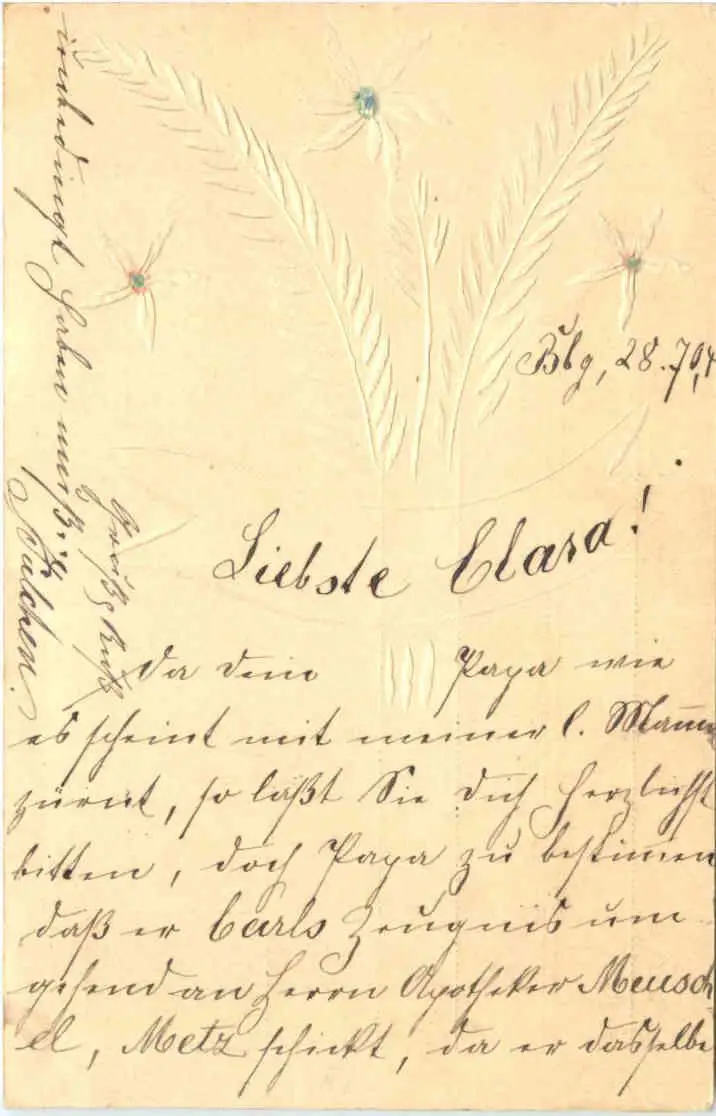 Bbg, 28.7.04
Liebste Clara!
Da dein Papa wie
es scheint mit meiner l. Mama
zürnt, so läßt Sie dich herzlichst
bitten, doch Papa zu bestimen
daß er Carls Zeugnis um-
gehend an Herrn Apotheker Meusch-
el, Metz schickt, da er dasselbe
unbedingt haben muß.
Gruß & Kuß